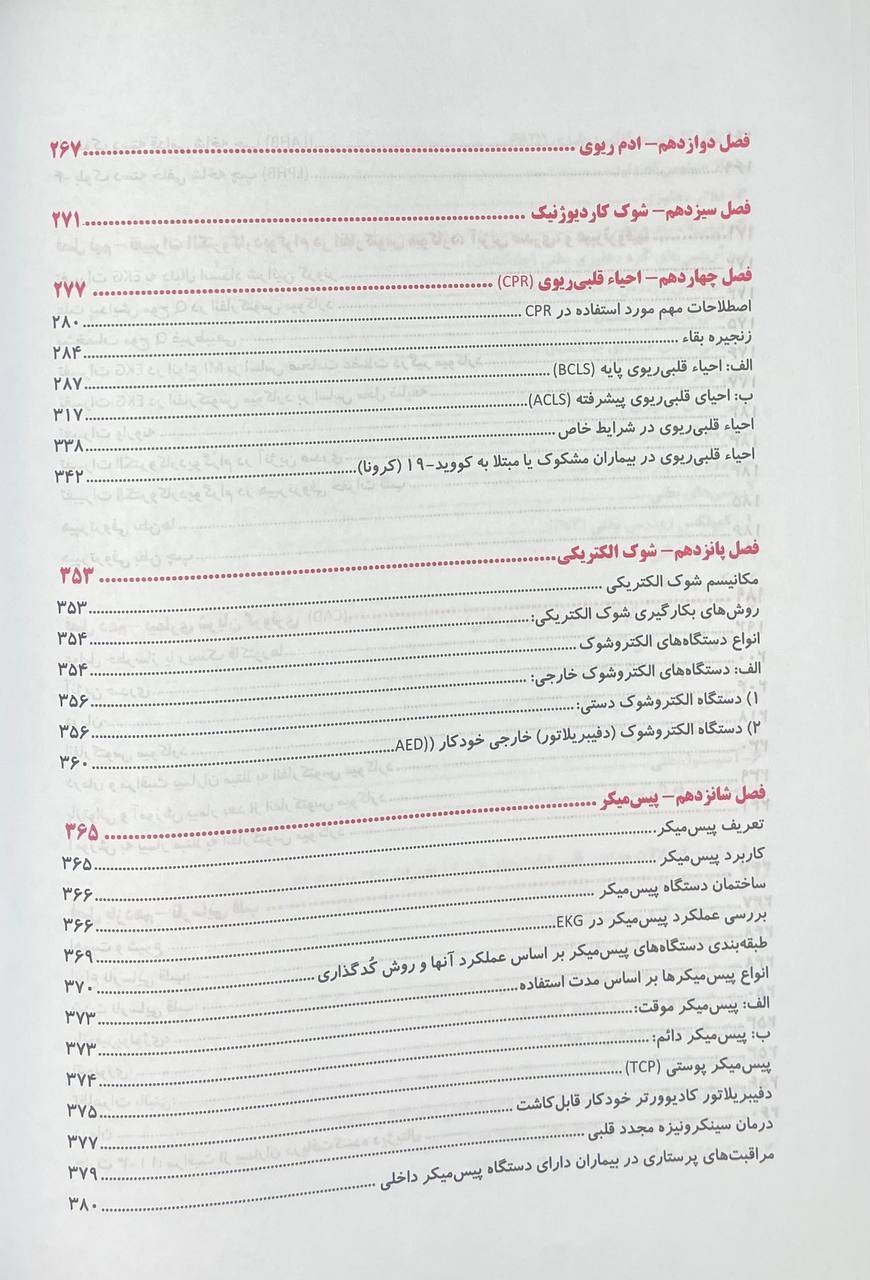 فصل دوازدهم– ادم ریوی ........ ۲۶۷
فصل سیزدهم– شوک کاردیوژنیک ........ ۲۷۱
فصل چهاردهم– احیاء قلبی‌ریوی (CPR) ........ ۲۷۷
اصطلاحات مهم مورد استفاده در CPR ........ ۲۸۰
زنجیره بقاء ........ ۲۸۴
الف: احیاء قلبی‌ریوی پایه (BCLS) ........ ۲۸۷
ب: احیای قلبی‌ریوی پیشرفته (ACLS) ........ ۳۱۷
احیاء قلبی‌ریوی در شرایط خاص ........ ۳۳۸
احیاء قلبی‌ریوی در بیماران مشکوک یا مبتلا به کووید–۱۹ (کرونا) ........ ۳۴۲
فصل پانزدهم– شوک الکتریکی ........ ۳۵۳
مکانیسم شوک الکتریکی ........ ۳۵۳
روش‌های بکارگیری شوک الکتریکی: ........ ۳۵۴
انواع دستگاه‌های الکتروشوک ........ ۳۵۴
الف: دستگاه‌های الکتروشوک خارجی: ........ ۳۵۶
۱) دستگاه الکتروشوک دستی: ........ ۳۵۶
۲) دستگاه الکتروشوک (دفیبریلاتور) خارجی خودکار ((AED ........ ۳۶۰
فصل شانزدهم– پیس‌میکر ........ ۳۶۵
تعریف پیس‌میکر ........ ۳۶۵
کاربرد پیس‌میکر ........ ۳۶۶
ساختمان دستگاه پیس‌میکر ........ ۳۶۶
بررسی عملکرد پیس‌میکر در EKG ........ ۳۶۹
طبقه‌بندی دستگاه‌های پیس‌میکر بر اساس عملکرد آنها و روش کُدگذاری ........ ۳۷۰
انواع پیس‌میکرها بر اساس مدت استفاده ........ ۳۷۳
الف: پیس‌میکر موقت: ........ ۳۷۳
ب: پیس‌میکر دائم: ........ ۳۷۴
پیس‌میکر پوستی (TCP) ........ ۳۷۵
دفیبریلاتور کادیوورتر خودکار قابل‌کاشت ........ ۳۷۷
درمان سینکرونیزه مجدد قلبی ........ ۳۷۹
مراقبت‌های پرستاری در بیماران دارای دستگاه پیس‌میکر داخلی ........ ۳۸۰